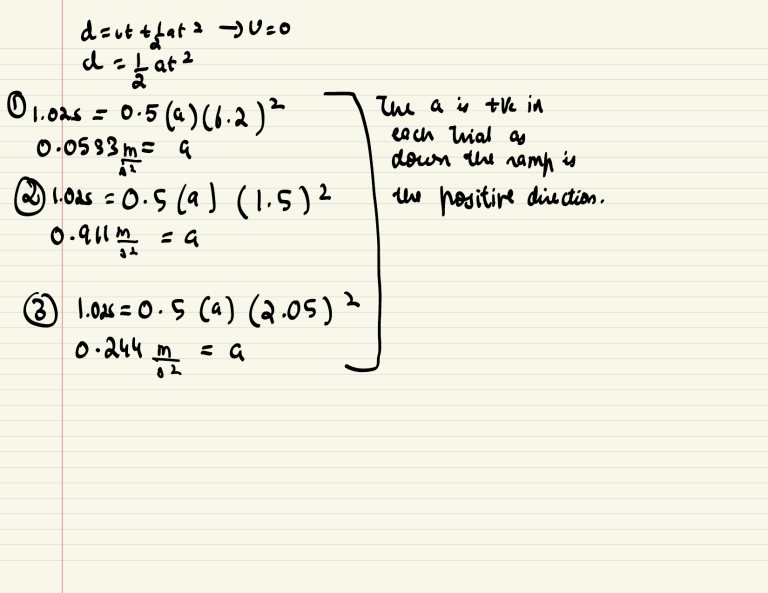 d = ut + 1/2 at² → U = 0
d = 1/2 at²
① 1.025 = 0.5 (a) (6.2)²
0.0533 m/s² = a
② 1.025 = 0.5 (a) (1.5)²
0.911 m/s² = a
③ 1.025 = 0.5 (a) (2.05)²
0.244 m/s² = a
The a is +ve in
each trial as
down the ramp is
the positive direction.